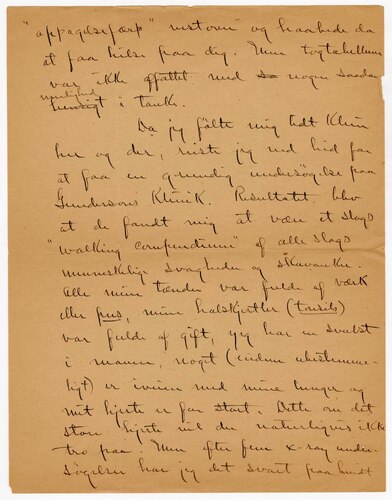 "appagelsefærd" vestover og haabede da
at faa hilse paa dig. Men togtabellen
var ikke affattet med sa nogen saadan
mulighed hensigt i tank.
Da jeg følte mig lidt klein
her og der, reiste jeg ned hid for
at faa en grundig undersøgelse paa
Gundersons Klinik. Resultatet blev
at de fandt mig at være et slags
"walking compendium" af alle slags
menneskelige svagheder og skavanke.
Alle mine tænder var fulde af værk
eller pus, mine halskjertler (tonsils)
var fulde af gift, jeg har en svulst
i maven, nogt (endnu ubestemme-
ligt) er iveien med mine lunger og
mit hjerte er for stort. Dette om det
store hjerte vil du naturligvis ikke
tro paa. Men efter fem x-ray under-
søgelser har jeg det svart paa hvidt